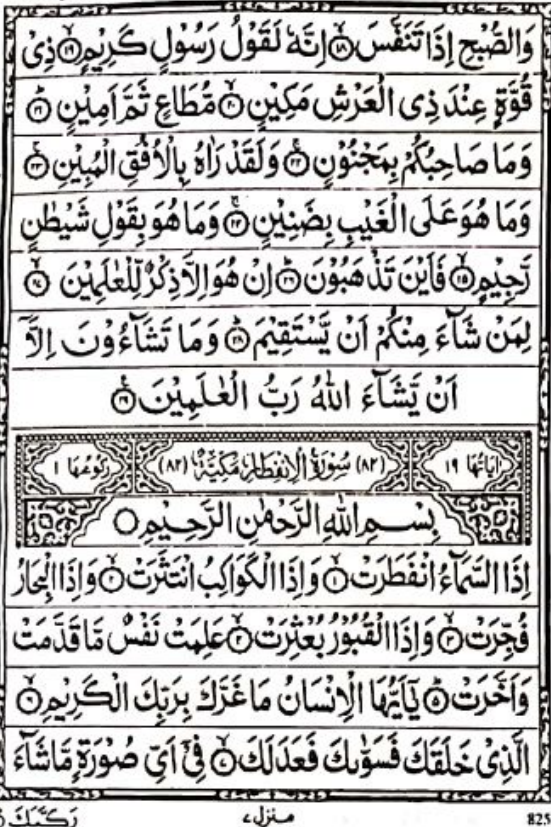 وَالصُّبْحِ اِذَا تَنَفَّسَ ۙ﴿۱۸﴾ اِنَّهٗ لَقَوْلُ رَسُوْلٍ كَرِيْمٍ ۙ﴿۱۹﴾ ذِىْ
قُوَّةٍ عِنْدَ ذِى الْعَرْشِ مَكِيْنٍ ۙ﴿۲۰﴾ مُّطَاعٍ ثَمَّ اَمِيْنٍ ؕ﴿۲۱﴾
وَمَا صَاحِبُكُمْ بِمَجْنُوْنٍ ۚ﴿۲۲﴾ وَلَقَدْ رَاٰهُ بِالْاُفُقِ الْمُبِيْنِ ۚ﴿۲۳﴾
وَمَا هُوَ عَلَى الْغَيْبِ بِضَنِيْنٍ ۚ﴿۲۴﴾ وَمَا هُوَ بِقَوْلِ شَيْطٰنٍ
رَّجِيْمٍ ۙ﴿۲۵﴾ فَاَيْنَ تَذْهَبُوْنَ ؕ﴿۲۶﴾ اِنْ هُوَ اِلَّا ذِكْرٌ لِّلْعٰلَمِيْنَ ۙ﴿۲۷﴾
لِمَنْ شَآءَ مِنْكُمْ اَنْ يَّسْتَقِيْمَ ؕ﴿۲۸﴾ وَمَا تَشَآءُوْنَ اِلَّاۤ
اَنْ يَّشَآءَ اللّٰهُ رَبُّ الْعٰلَمِيْنَ ﴿۲۹﴾
اٰيَاتُهَا ۱۹ (۸۲) سُوْرَةُ الْاِنْفِطَارِ مَكِّيَّةٌ (۸۲) رُكُوْعُهَا ۱
بِسْمِ اللّٰهِ الرَّحْمٰنِ الرَّحِيْمِ
اِذَا السَّمَآءُ انْفَطَرَتْ ۙ﴿۱﴾ وَاِذَا الْكَوَاكِبُ انْتَثَرَتْ ۙ﴿۲﴾ وَاِذَا الْبِحَارُ
فُجِّرَتْ ۙ﴿۳﴾ وَاِذَا الْقُبُوْرُ بُعْثِرَتْ ۙ﴿۴﴾ عَلِمَتْ نَفْسٌ مَّا قَدَّمَتْ
وَاَخَّرَتْ ؕ﴿۵﴾ يٰۤاَيُّهَا الْاِنْسَانُ مَا غَرَّكَ بِرَبِّكَ الْكَرِيْمِ ۙ﴿۶﴾
الَّذِىْ خَلَقَكَ فَسَوّٰىكَ فَعَدَلَكَ ۙ﴿۷﴾ فِىْۤ اَىِّ صُوْرَةٍ مَّا شَآءَ
رَكَّبَكَ منزل ۷ 825